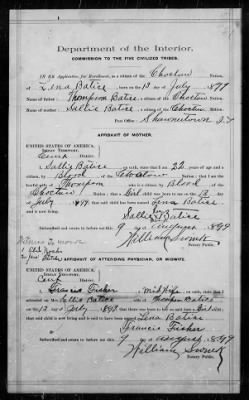 Department of the Interior.
COMMISSION TO THE FIVE CIVILIZED TRIBES.
IN RE Application for Enrollment, as a citizen of the Choctaw Nation,
of Lena Batise born on the 13 day of July 1899
Name of father: Thompson Batise a citizen of the Choctaw Nation.
Name of mother: Sallie Batise a citizen of the Choctaw Nation.
Post Office: Shawneetown I.T.
AFFIDAVIT OF MOTHER.
UNITED STATES OF AMERICA,
INDIAN TERRITORY,
District.
I, Sallie Batise on oath, state that I am 22 years of age and a
citizen, by Blood of the Choctaw Nation;
lawful wife of Thompson who is a citizen, by Blood of the
Choctaw Nation; that a Girl child was born to me on the 13 day
of July 1899, that said child has been named Lena Batise
Sallie Batise
Subscribed and sworn to before me this 9 day of August 1899
William
Notary Public.
AFFIDAVIT OF ATTENDING PHYSICIAN, OR MIDWIFE.
UNITED STATES OF AMERICA,
INDIAN TERRITORY,
District.
I, Francis Fisher a Midwife on oath, state that I
attended on Mrs. Sallie Batise wife of Thompson Batise
on the 13 day of July 1899 that there was born to her on said date a Girl child;
that said child is now living and is said to have been named Lena Batise
Francis Fisher
Subscribed and sworn to before me this 9 day of August 1899
William
Notary Public.